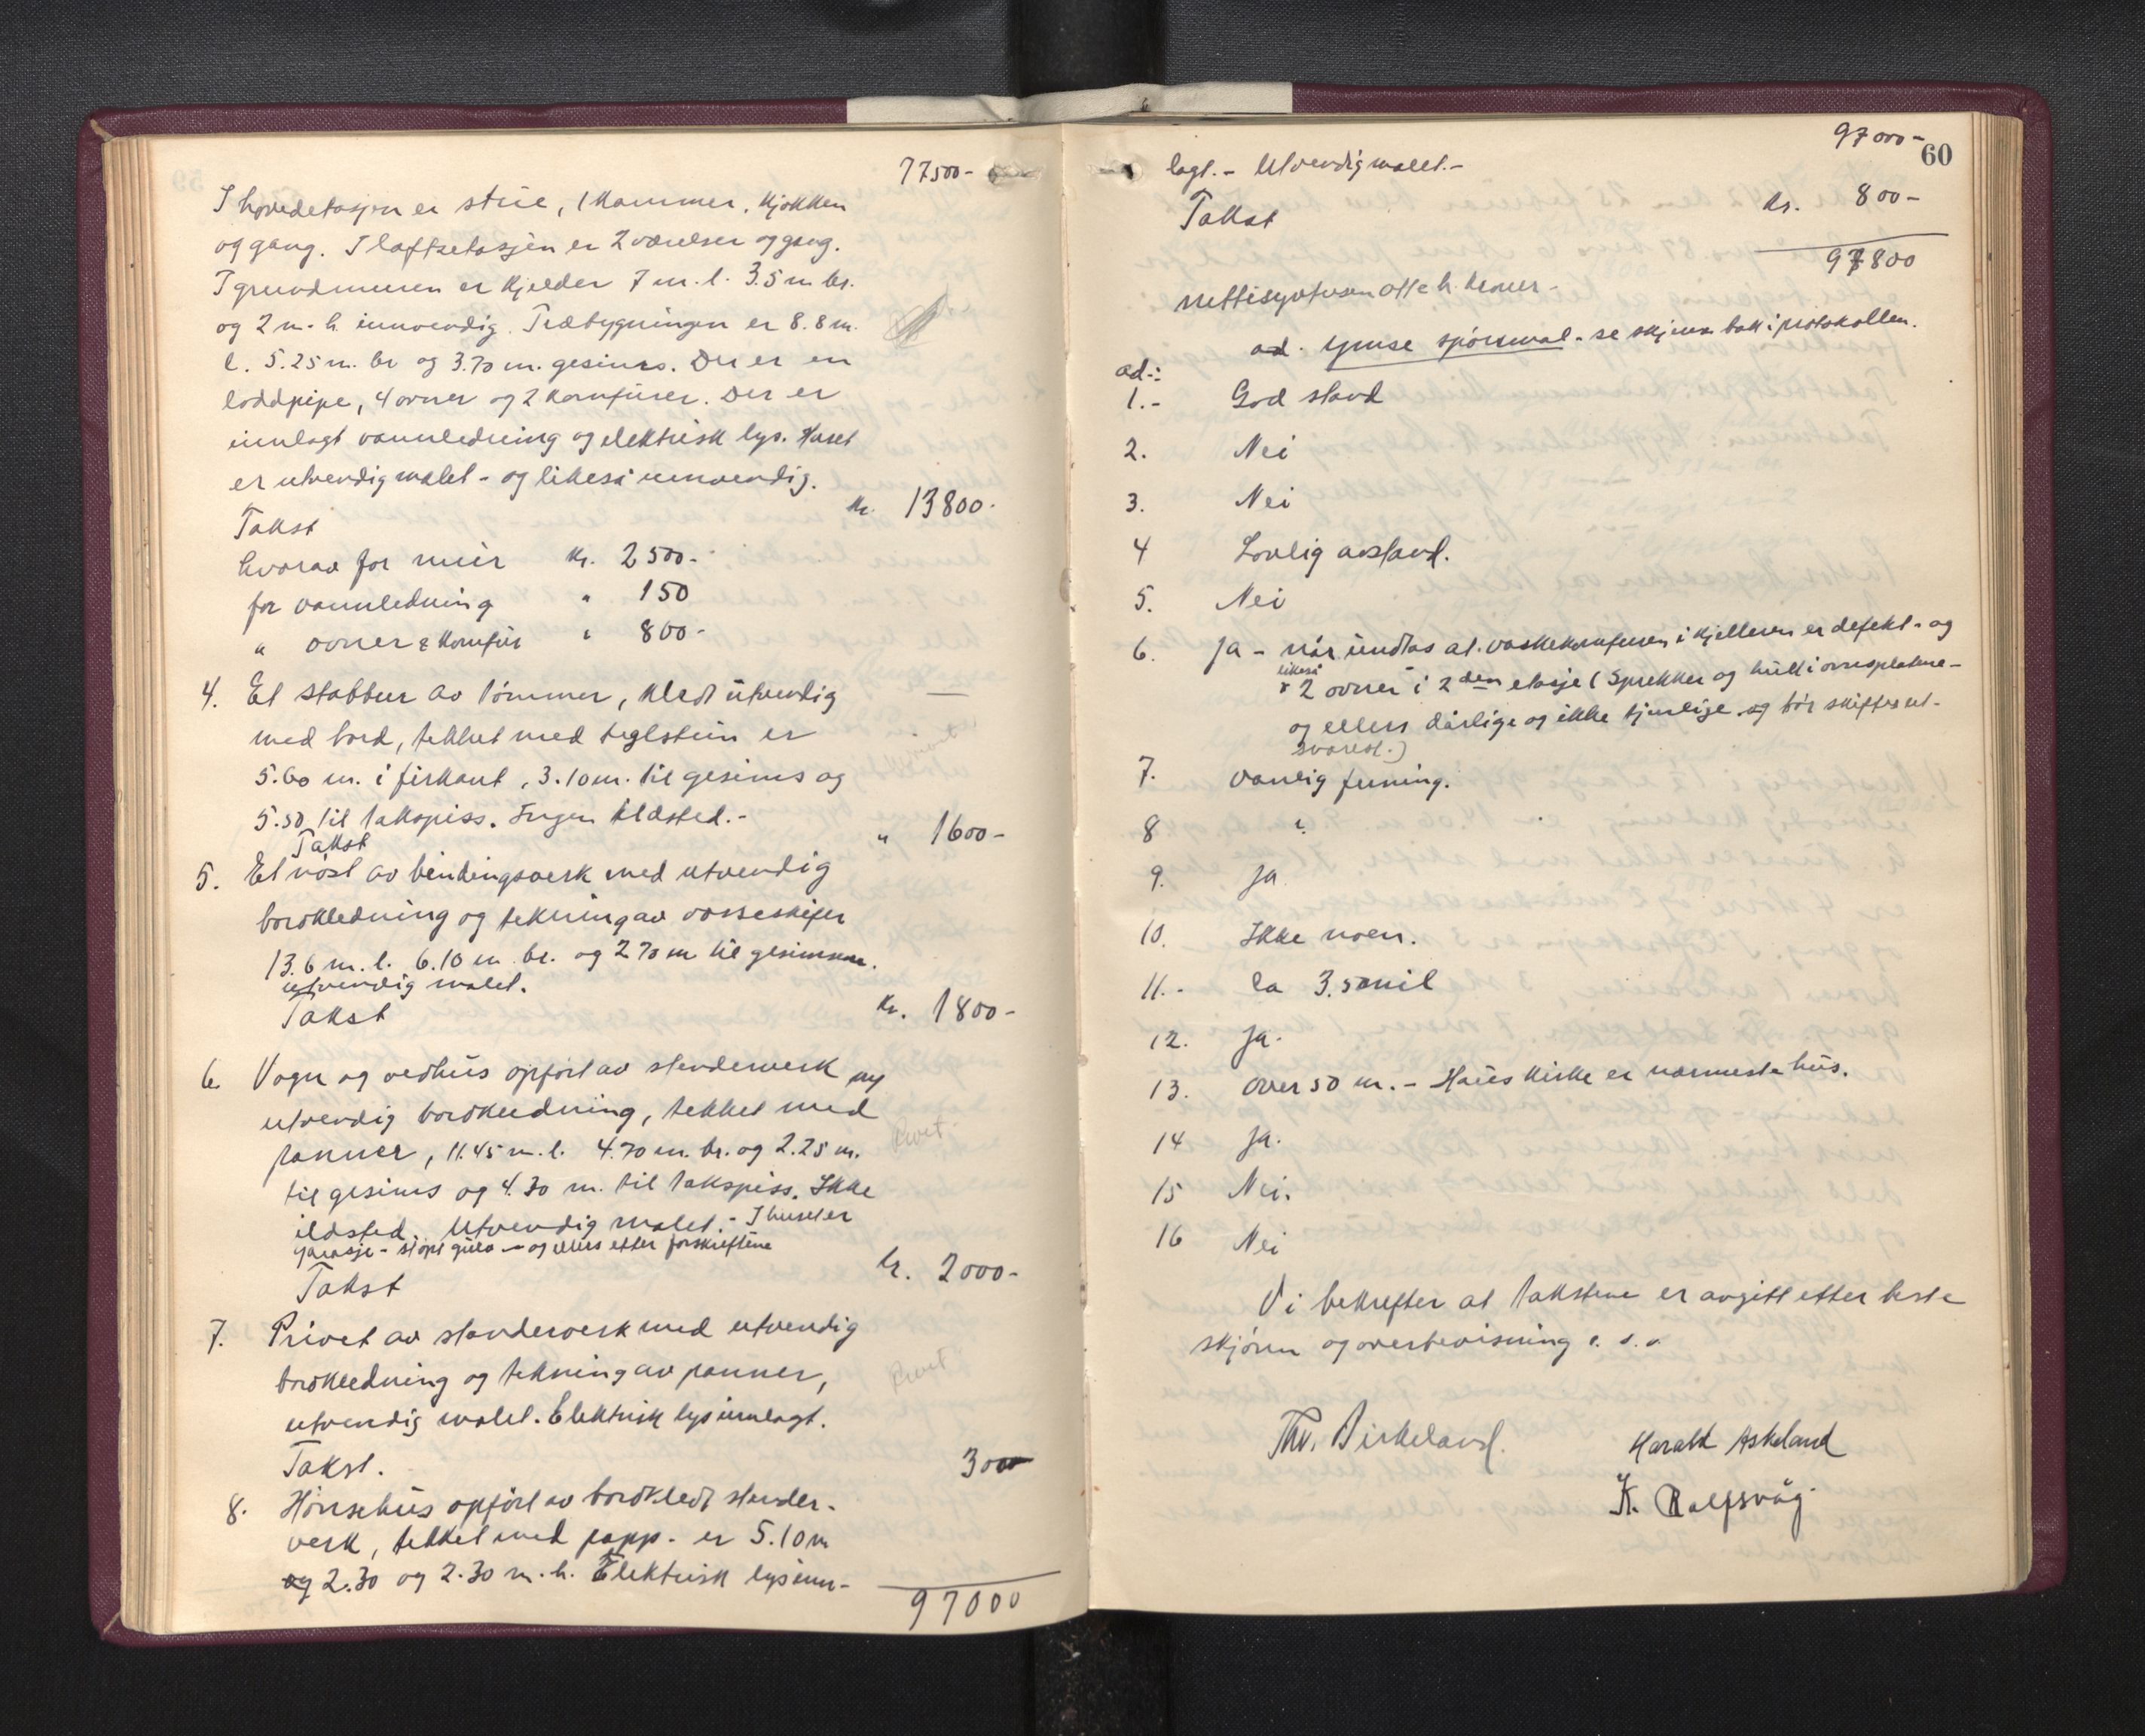 77500-
I hovedetasjen er stue, 1 kammer, kjøkken
og gang. I loftsetasjen er 2 værelser og gang.
I grundmuren er kjelder 7 m. l. 3.5 m br.
og 2 m. h. innvendig. Træbygningen er 8.8 m.
l. 5.25 m. br og 3.70 m. gesims. Der er en
loddpipe, 4 ovner og 2 komfurer. Der er
innlagt vannledning og elektrisk lys. Huset
er utvendig malet - og likeså innvendig.
Takst kr. 13800-
hvorav for mur kr. 2500-
for vannledning " 150
" ovner & komfur " 800-
4. Et stabbur av tømmer, kledt utvendig
med bord, tekket med teglstein er
5.60 m. i firkant, 3.10 m. til gesims og
5.50 til takspiss. Ingen ildsted.-
Takst " 1600-
5. Et nøst av bindingsverk med utvendig
bordkledning og tekning av vosseskifer
13.6 m. l. 6.10 m. br. og 2.70 m til gesimsen.
utvendig malet.
Takst kr. 1800-
6. Vogn og vedhus opført av stenderverk og
utvendig bordkledning, tekket med
panner, 11.45 m. l. 4.70 m. br. og 2.25 m.
til gesims og 4.30 m. til takspiss. Ikke
ildsted. Utvendig malet.- I huset er
garasje - støpt gulv - og ellers etter forskriftene
Takst kr. 2000-
7. Privet av stenderverk med utvendig
bordkledning og tekning av panner,
utvendig malet. Elektrisk lys innlagt.
Takst. 300
8. Hønsehus opført av bordkledt stender-
verk, tekket med papp. er 5.10 m
og 2.30 og 2.30 m. h. Elektrisk lys inn-
97000
97000-
60
lagt.- Utvendig malet.-
Takst kr. 800-
97800
ad. ymse spørsmål - se skjema bak i protokollen.
ad.:
1.- God stand
2. Nei
3. Nei
4 Lovlig avstand.
5. Nei
6. Ja - når undtas at vaskekomfuren i kjelleren er defekt - og
likeså
2 ovner i 2den etasje (Sprekker og hull i ovnsplatene -
og ellers dårlige og ikke tjenlige og bør skiftes ut -
snarest.)
7. Vanlig fyring.
8 "
9. Ja
10. Ikke noen.
11.- Ca 3.50 mil
12. Ja.
13. Over 50 m. - Haus kirke er nærmeste hus.
14 Ja.
15 Nei.
16 Nei
Vi bekrefter at takstene er avgitt etter beste
skjønn og overbevisning
Thv. Birkeland.
Harald Askeland
K. Rolfsvåg